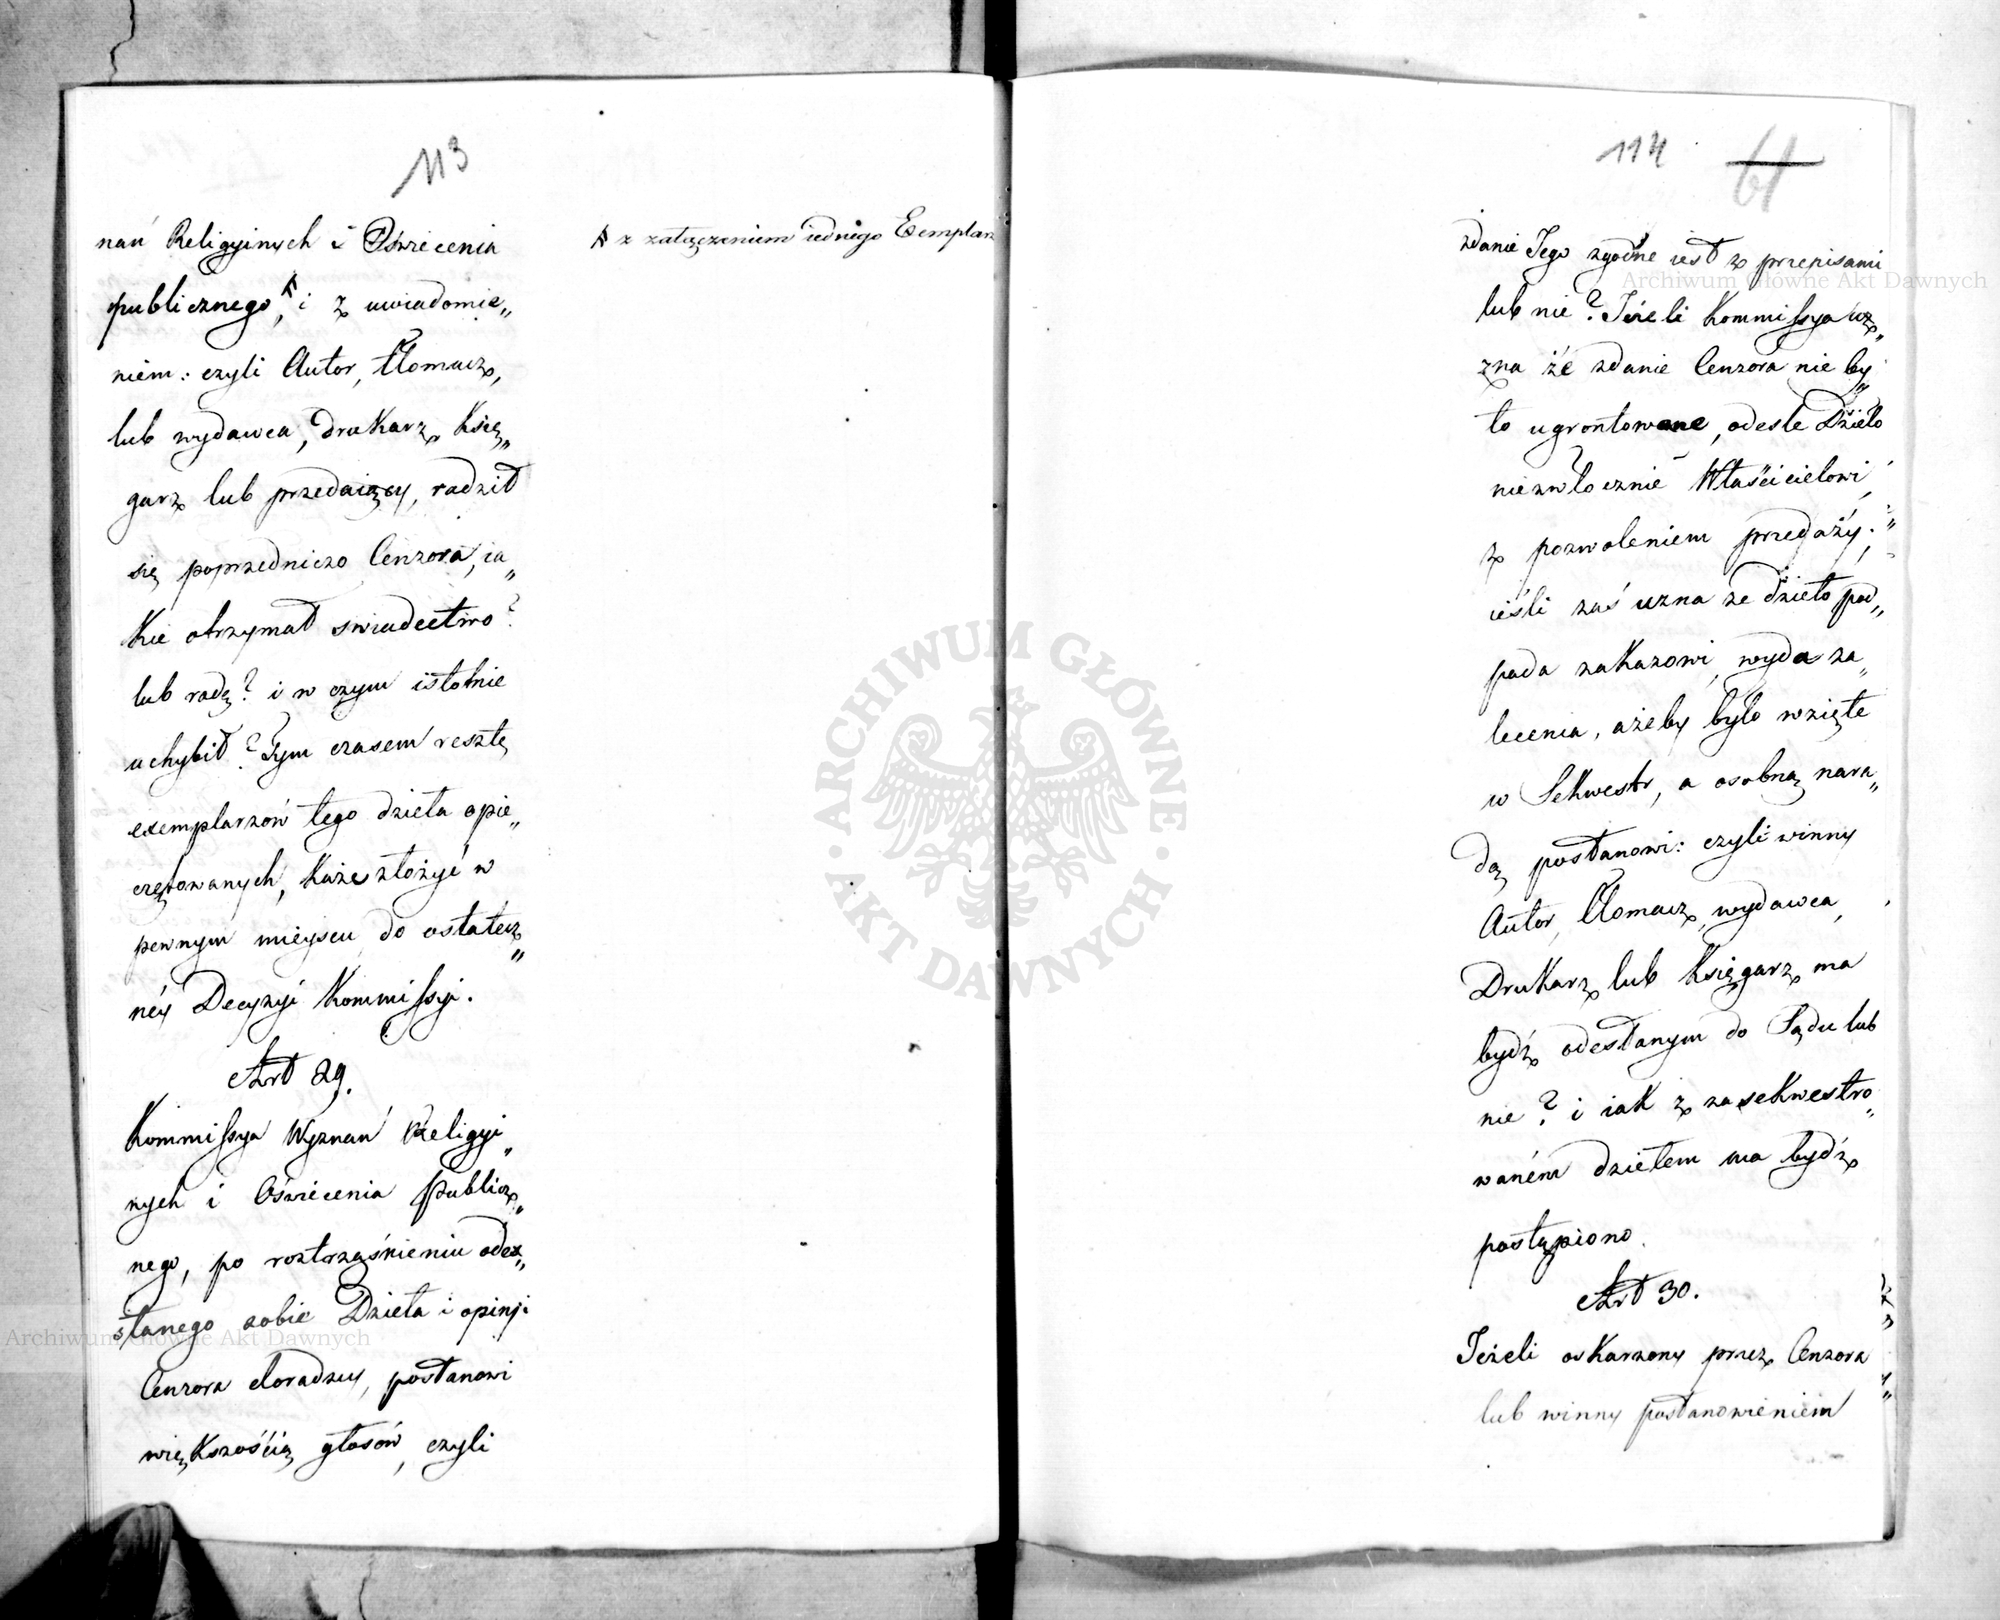 113
nań Religyinych i Oświecenia
publicznego, ⁂ i z uwiadomie„
niem: czyli Autor, tłomacz,
lub wydawca, drukarz, Księ„
garz lub przedaiący, radził
się poprzedniczo Cenzora, ia„
kie otrzymał swiadectwo?
lub radę? i w czym istotnie
uchybił? Tym czasem resztę
exemplarzów tego dzieła opie„
czętowanych, każe złożyć w
pewnym mieyscu do ostatecz„
néy Decyzyi Kommissyi.
Art 29.
Kommissya Wyznań Religyi„
nych i Oświecenia Publicz„
nego, po roztrząśnieniu odes„
słanego sobie Dzieła i opinji
Cenzora doradzcy, postanowi
większością głosów, czyli
z załączeniem iednego Exemplarz
114 61
zdanie Jego zgodne iest z przepisami
lub nie? Jeżeli Kommissya uz„
zna że zdanie Cenzora nie by„
ło ugrontowane, odesle Dzieło
niezwłocznie Właścicielowi,
z pozwoleniem przedaży;
ieśli zaś uzna ze dzieło pod„
pada zakazowi, wyda za„
lecenia, ażeby było wzięte
w Sekwestr, a osobną nara„
dą postanowi: czyli winny
Autor, tłomacz, wydawca,
Drukarz lub Księgarz ma
bydź odesłanym do Sądu lub
nie? i iak z zasekwestro„
waném dziełem ma bydź
postąpiono.
Art 30.
Jeżeli oskarzony przez Cenzora
lub winny postanowieniem
Archiwum Główne Akt Dawnych
ARCHIWUM GŁÓWNE · AKT DAWNYCH ·
Archiwum Główne Akt Dawnych